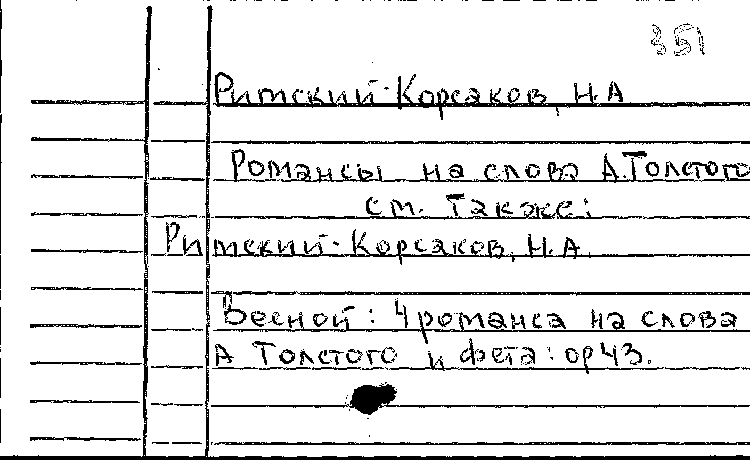 351
Римский-Корсаков, Н.А
Романсы на слова А.Толстого
см. также:
Римский-Корсаков, Н.А.
Весной: 4 романса на слова
А Толстого и Фета: ор 43.